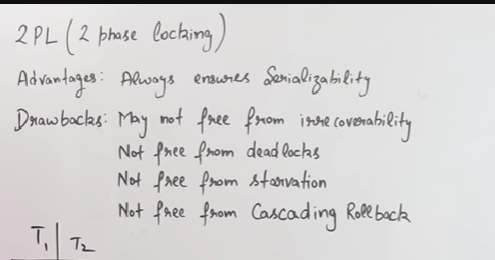 2PL (2 phase locking)
Advantages: Always ensures Serializability
Drawbacks: May not free from irrecoverability
Not free from deadlocks
Not free from starvation
Not free from Cascading Rollback
T₁ | T₂